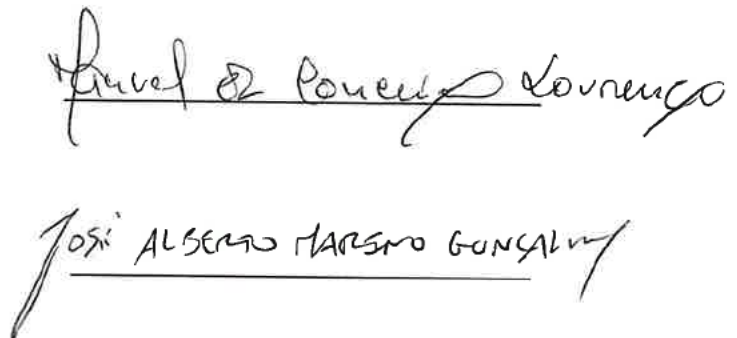 Manuel da Conceição Lourenço
José ALBERTO MARENO GONÇALVES